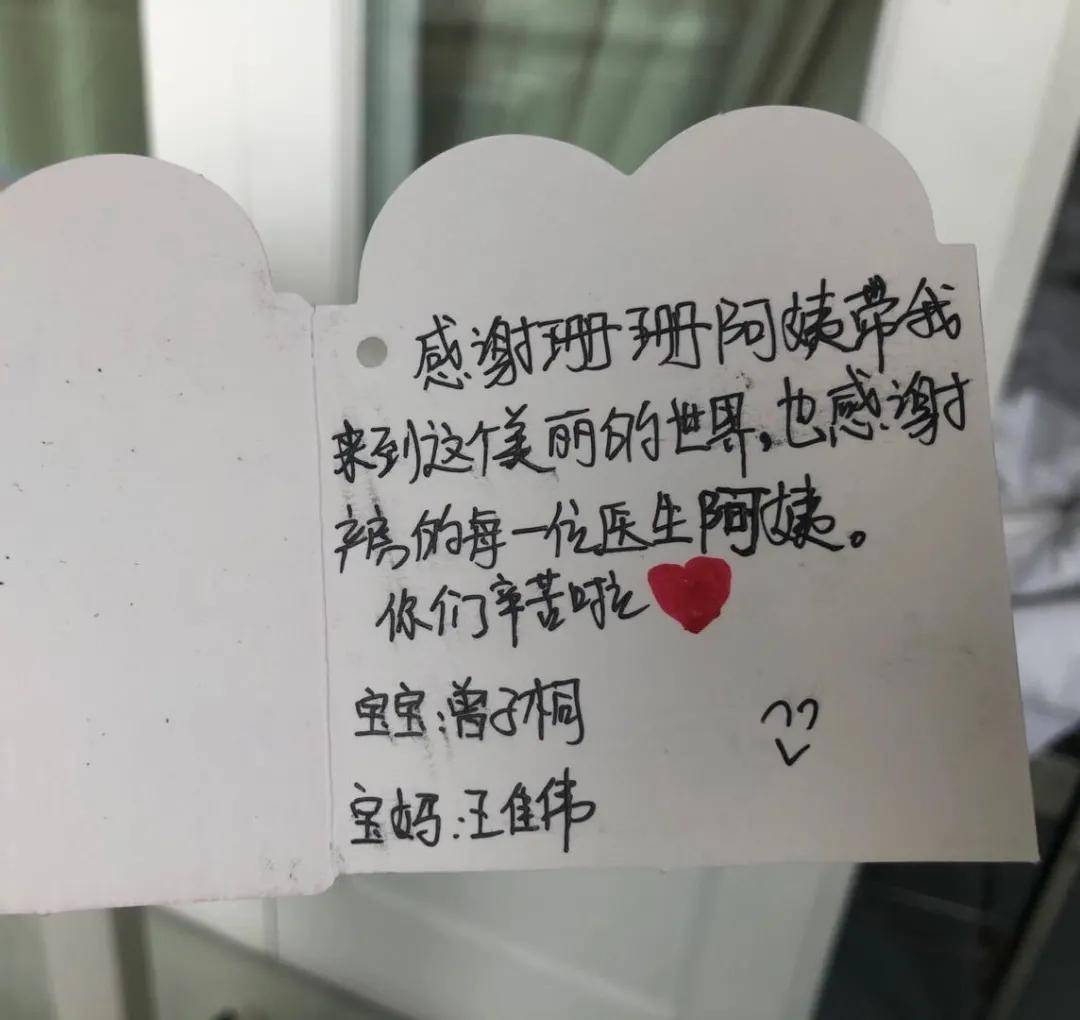 感谢珊珊阿姨带我
来到这个美丽的世界，也感谢
产房的每一位医生阿姨。
你们辛苦啦
宝宝：曾子桐
宝妈：王佳伟